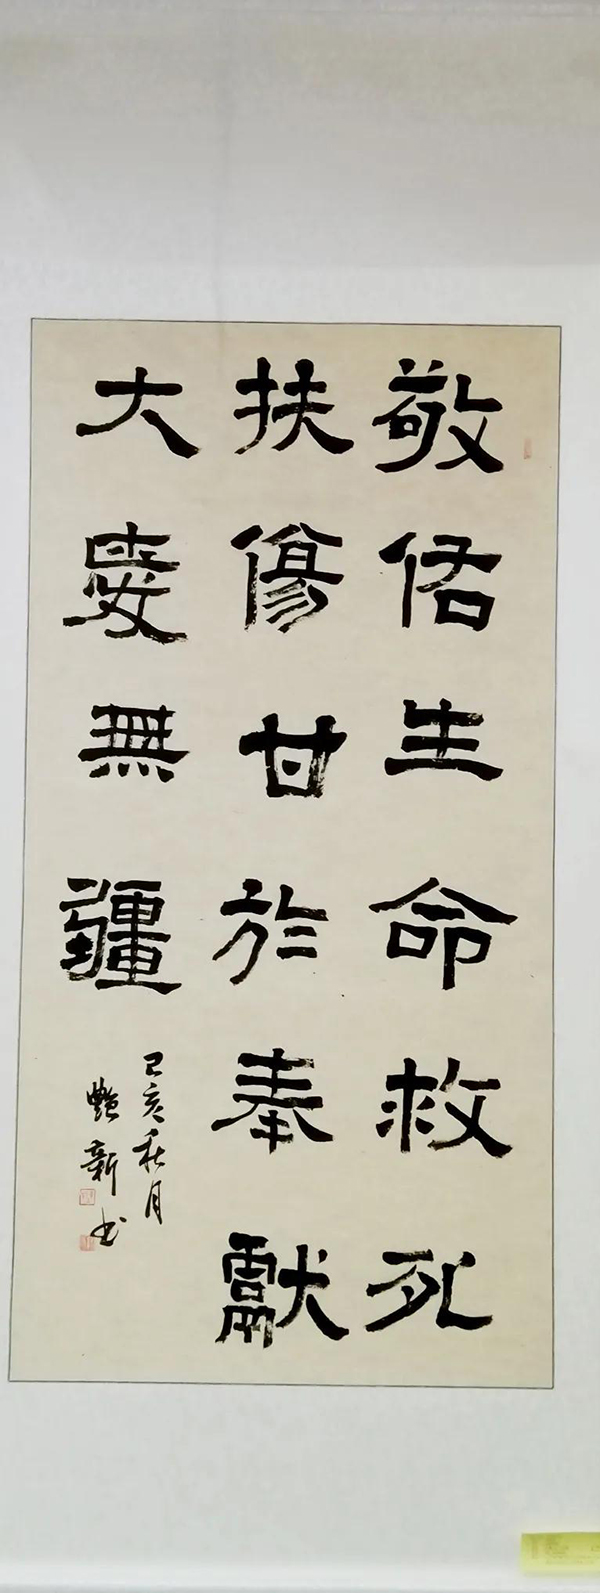 敬佑生命救死
扶傷甘於奉獻
大愛無疆
己亥秋月
艷新书